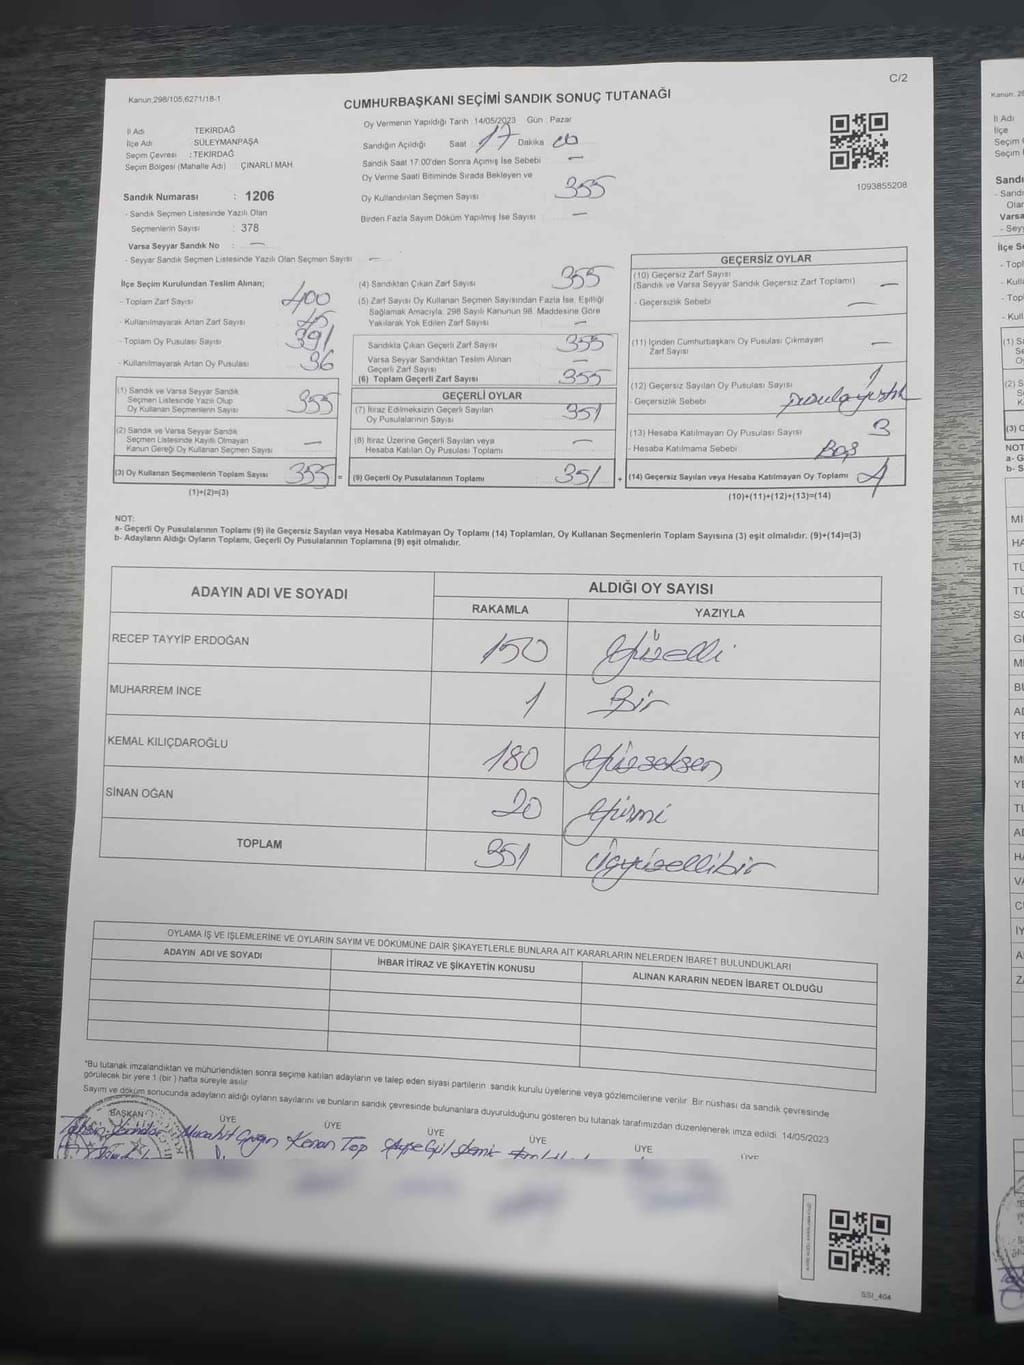 C/2
Kanun;298/105,6271/18-1
CUMHURBAŞKANI SEÇİMİ SANDIK SONUÇ TUTANAĞI
İl Adı TEKİRDAĞ
İlçe Adı SÜLEYMANPAŞA
Seçim Çevresi : TEKİRDAĞ
Seçim Bölgesi (Mahalle Adı) : ÇINARLI MAH.
Sandık Numarası : 1206
- Sandık Seçmen Listesinde Yazılı Olan
Seçmenlerin Sayısı : 378
Varsa Seyyar Sandık No : —
- Seyyar Sandık Seçmen Listesinde Yazılı Olan Seçmen Sayısı —
Oy Vermenin Yapıldığı Tarih : 14/05/2023 Gün : Pazar
Sandığın Açıldığı Saat : 17 Dakika :
Sandık Saat 17.00'den Sonra Açımış İse Sebebi —
Oy Verme Saati Bitiminde Sırada Bekleyen ve
Oy Kullandırılan Seçmen Sayısı 355
Birden Fazla Sayım Döküm Yapılmış İse Sayısı —
1093855208
İlçe Seçim Kurulundan Teslim Alınan;
- Toplam Zarf Sayısı 400
- Kullanılmayarak Artan Zarf Sayısı 45
- Toplam Oy Pusulası Sayısı 391
- Kullanılmayarak Artan Oy Pusulası 36
(1) Sandık ve Varsa Seyyar Sandık
Seçmen Listesinde Yazılı Olup
Oy Kullanan Seçmenlerin Sayısı 355
(2) Sandık ve Varsa Seyyar Sandık
Seçmen Listesinde Kayıtlı Olmayan
Kanun Gereği Oy Kullanan Seçmen Sayısı —
(3) Oy Kullanan Seçmenlerin Toplam Sayısı 355 =
(1)+(2)=(3)
(4) Sandıktan Çıkan Zarf Sayısı 355
(5) Zarf Sayısı Oy Kullanan Seçmen Sayısından Fazla İse, Eşitliği
Sağlamak Amacıyla, 298 Sayılı Kanunun 98. Maddesine Göre
Yakılarak Yok Edilen Zarf Sayısı —
Sandıkta Çıkan Geçerli Zarf Sayısı 355
Varsa Seyyar Sandıktan Teslim Alınan
Geçerli Zarf Sayısı —
(6) Toplam Geçerli Zarf Sayısı 355
GEÇERLİ OYLAR
(7) İtiraz Edilmeksizin Geçerli Sayılan
Oy Pusulalarının Sayısı 351
(8) İtiraz Üzerine Geçerli Sayılan veya
Hesaba Katılan Oy Pusulası Toplamı —
(9) Geçerli Oy Pusulalarının Toplamı 351 +
GEÇERSİZ OYLAR
(10) Geçersiz Zarf Sayısı
(Sandık ve Varsa Seyyar Sandık Geçersiz Zarf Toplamı) —
- Geçersizlik Sebebi —
(11) İçinden Cumhurbaşkanı Oy Pusulası Çıkmayan
Zarf Sayısı —
(12) Geçersiz Sayılan Oy Pusulası Sayısı 1
- Geçersizlik Sebebi
(13) Hesaba Katılmayan Oy Pusulası Sayısı 3
- Hesaba Katılmama Sebebi Boş
(14) Geçersiz Sayılan veya Hesaba Katılmayan Oy Toplamı 4
(10)+(11)+(12)+(13)=(14)
NOT:
a- Geçerli Oy Pusulalarının Toplamı (9) ile Geçersiz Sayılan veya Hesaba Katılmayan Oy Toplamı (14) Toplamları, Oy Kullanan Seçmenlerin Toplam Sayısına (3) eşit olmalıdır. (9)+(14)=(3)
b- Adayların Aldığı Oyların Toplamı, Geçerli Oy Pusulalarının Toplamına (9) eşit olmalıdır.
ADAYIN ADI VE SOYADI
ALDIĞI OY SAYISI
RAKAMLA YAZIYLA
RECEP TAYYİP ERDOĞAN 150 Yüzelli
MUHARREM İNCE 1 Bir
KEMAL KILIÇDAROĞLU 180 Yüzseksen
SİNAN OĞAN 20 Yirmi
TOPLAM 351 Üçyüzellibir
OYLAMA İŞ VE İŞLEMLERİNE VE OYLARIN SAYIM VE DÖKÜMÜNE DAİR ŞİKAYETLERLE BUNLARA AİT KARARLARIN NELERDEN İBARET BULUNDUKLARI
ADAYIN ADI VE SOYADI
İHBAR İTİRAZ VE ŞİKAYETİN KONUSU
ALINAN KARARIN NEDEN İBARET OLDUĞU
*Bu tutanak imzalandıktan ve mühürlendikten sonra seçime katılan adayların ve talep eden siyasi partilerin sandık kurulu üyelerine veya gözlemcilerine verilir. Bir nüshası da sandık çevresinde
görülecek bir yere 1 (bir) hafta süreyle asılır.
Sayım ve döküm sonucunda adayların aldığı oyların sayılarını ve bunların sandık çevresinde bulunanlara duyurulduğunu gösteren bu tutanak tarafımızdan düzenlenerek imza edildi. 14/05/2023
BAŞKAN ÜYE ÜYE ÜYE ÜYE ÜYE ÜYE
Kenan Top
SSI_404